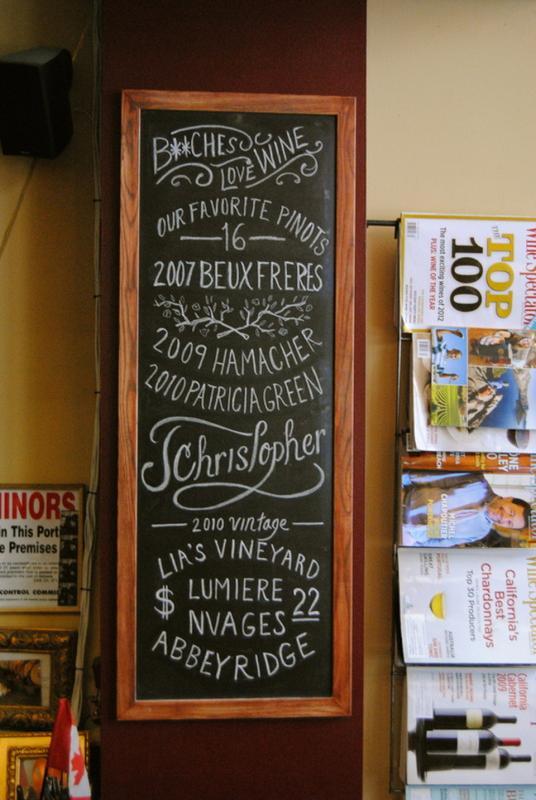 B**CHES
LOVE WINE
OUR FAVORITE PINOTS
16
2007 BEUX FRERES
2009 HAMACHER
2010 PATRICIA GREEN
J Christopher
2010 vintage
LIA'S VINEYARD
$ LUMIERE 22
NVAGES
ABBEY RIDGE
MINORS
in This Port
e Premises
CONTROL COMMI
Wine Spectator
THE TOP 100
The most exciting wines of 2012
PLUS: WINE OF THE YEAR
MICHEL CHAPOUTIER
California's
Best
Chardonnays
Top 30 Producers
California
Cabernet
2009